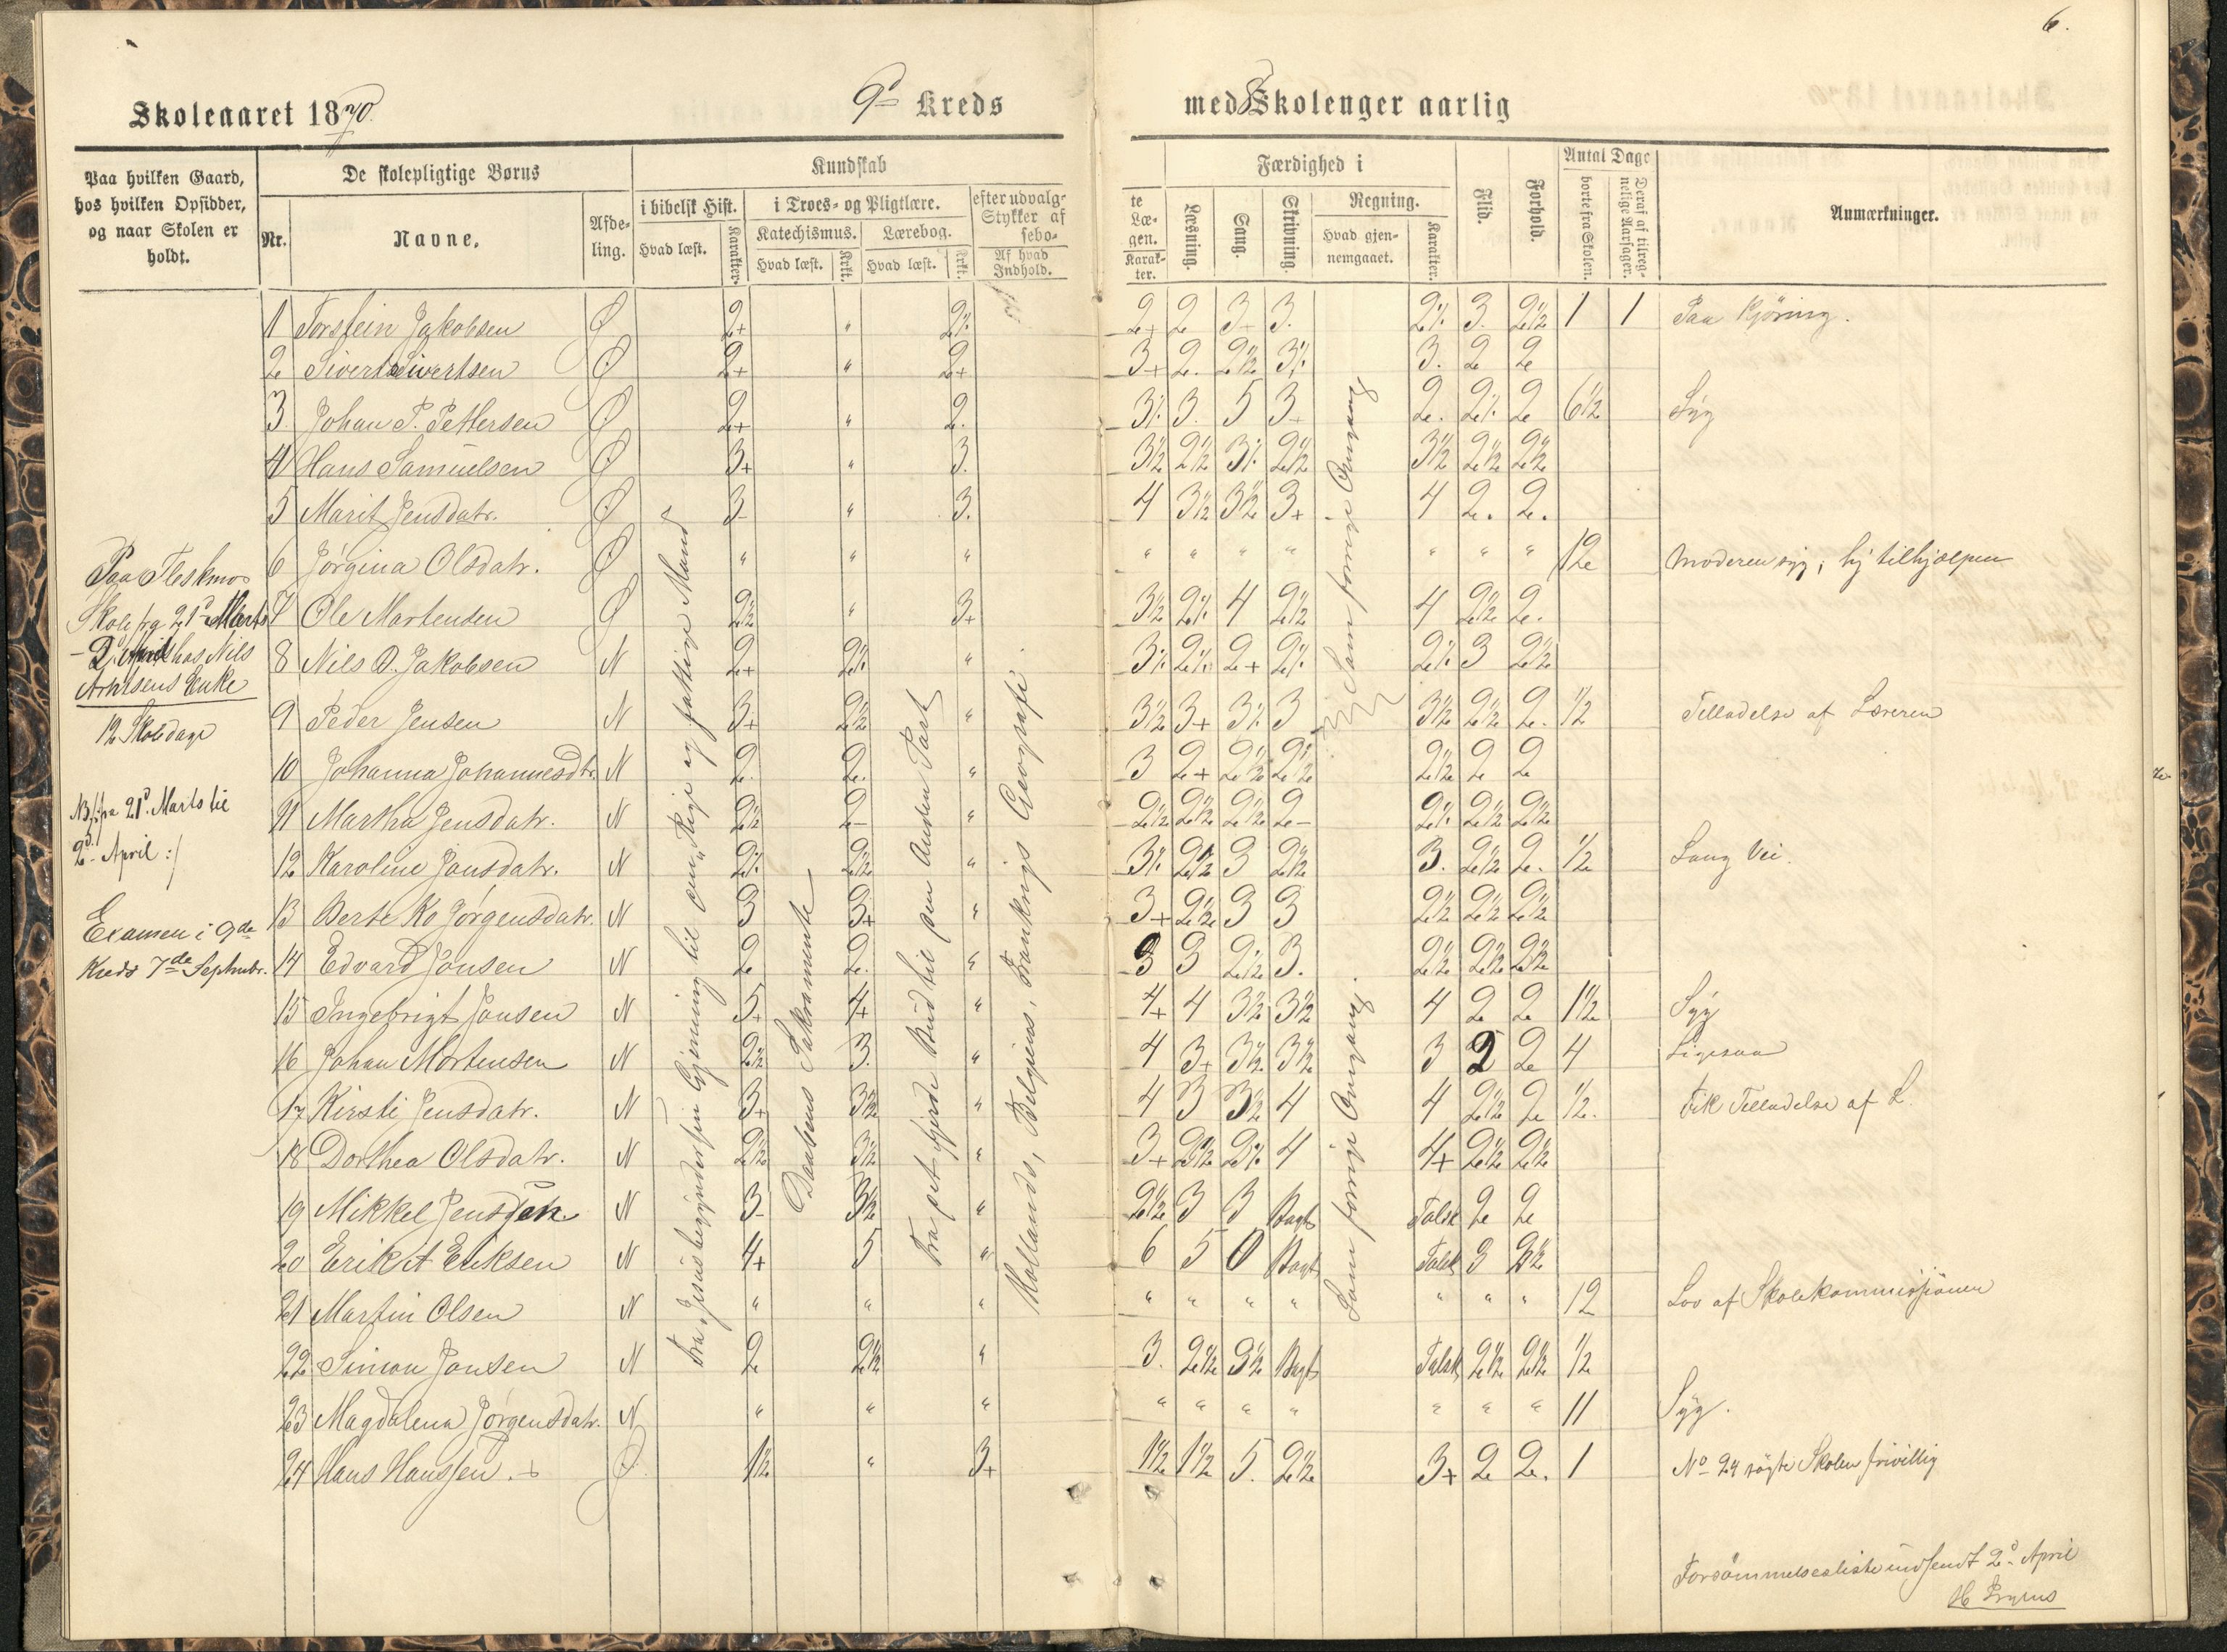 6.
Skoleaaret 1870.
9d Kreds med 8 Skolenger aarlig
Paa hvilken Gaard, hos hvilken Opsidder, og naar Skolen er holdt.
De skolepligtige Børns
Nr. Navne. Afdeling.
Kundskab
i bibelsk Hist. Hvad læst. Karakter.
i Troes- og Pligtlære.
Katechismus. Hvad læst. Krkt.
Lærebog. Hvad læst. Krkt.
efter udvalgte Stykker af Læsebogen. Af hvad Indhold. Karakter.
Færdighed i
Læsning. Sang. Skrivning.
Regning. Hvad gjennemgaaet. Karakter.
Flid. Forhold.
Antal Dage
borte fra Skolen. Deraf af tilregnelige Aarsager.
Anmærkninger.
Paa Fleskmo
Skole fra 21d Marts
- 2d April hos Nils
Arntsens Enke
12 Skoledage
NB /: fra 21d Marts til
2d April :/
Examen i 9de
Kreds 7de Septmbr.
Fra "Jesus begynder sin Gjerning til om "Rige og fattige Mand"
Daabens Sakramente
Fra det fjerde Bud til den Anden Part
Hollands, Belgiens, Frankrigs Geografi
Som forrige Omgang
Som forrige Omgang.
1 Torstein Jakobsen Ø 2+ " 2% 2+ 2 3+ 3. 2% 3. 2½ 1 1 Paa Kjöring.
2 Sivert Sivertsen Ø 2+ " 2+ 3+ 2. 2½ 3% 3. 2 2
3. Johan P. Pettersen Ø 2+ " 2. 3% 3. 5 3+ 2. 2% 2 6½ Syg
4 Hans Samuelsen Ø 3+ " 3. 3½ 2½ 3% 2½ 3½ 2½ 2½
5 Marit Jensdatr. Ø 3- " 3. 4 3½ 3½ 3+ 4 2. 2.
6 Jørgina Olsdatr. Ø " " " " " " " " " " 12 Moderen syg; hj tilhjælpen
7 Ole Martensen Ø 2½ " 3+ 3½ 2% 4 2½ 4 2½ 2.
8 Nils O. Jakobsen N 2+ 2% " 3% 2% 2+ 2% 2% 3 2½
9 Peder Jensen N 3+ 2½ " 3½ 3+ 3% 3 3½ 2½ 2. ½ Tilladelse af Læreren
10 Johanna Johannesdtr. N 2. 2. " 3 2+ 2½ 2½ 2½ 2 2
11 Martha Jensdatr. N 2½ 2- " 2½ 2½ 2½ 2- 2% 2½ 2½
12 Karoline Jonsdatr. N 2% 2½ " 3% 2½ 3 2½ 3. 2½ 2. ½ Lang Vei.
13 Berte Ko Jørgensdatr. N 3 3+ " 3+ 2½ 3 3 2½ 2½ 2½
14 Edvard Jonsen N 2 2. " 3 3 2½ 3. 2½ 2½ 2½
15 Ingebrigt Jonsen N 5+ 4+ " 4+ 4 3½ 3½ 4 2 2 1½ Syg
16 Johan Mortensen N 2½ 3. " 4 3+ 3½ 3½ 3 2 2 4 Ligesaa
17 Kirsti Jensdatr. N 3+ 3½ " 4 3 3½ 4 4 2½ 2 ½. Fik Tilladelse af L.
18 Dorthea Olsdatr. N 2½ 3½ " 3+ 2½ 2% 4 4+ 2½ 2½
19 Mikkel Jensen N 3- 3½ " 2½ 3 3 Bogst Talsk 2 2
20 Erik A Eriksen N 4+ 5 " 6 5 0 Bogst Talsk 3 2½
21 Martin Olsen N " " " " " " " " " " 12 Lov af Skolekommissionen
22 Simon Jonsen N 2 2½ " 3. 2½ 3½ Bogst Talsk 2½ 2½ ½
23 Magdalena Jørgensdatr. N " " " " " " " " " " 11 Syg.
24 Hans Hanssen. + Ø 1½ " 3+ 1½ 1½ 5. 2½ 3+ 2 2. 1 No 24 søgte Skolen frivillig
Forsömmelsesliste indsendt 2d April